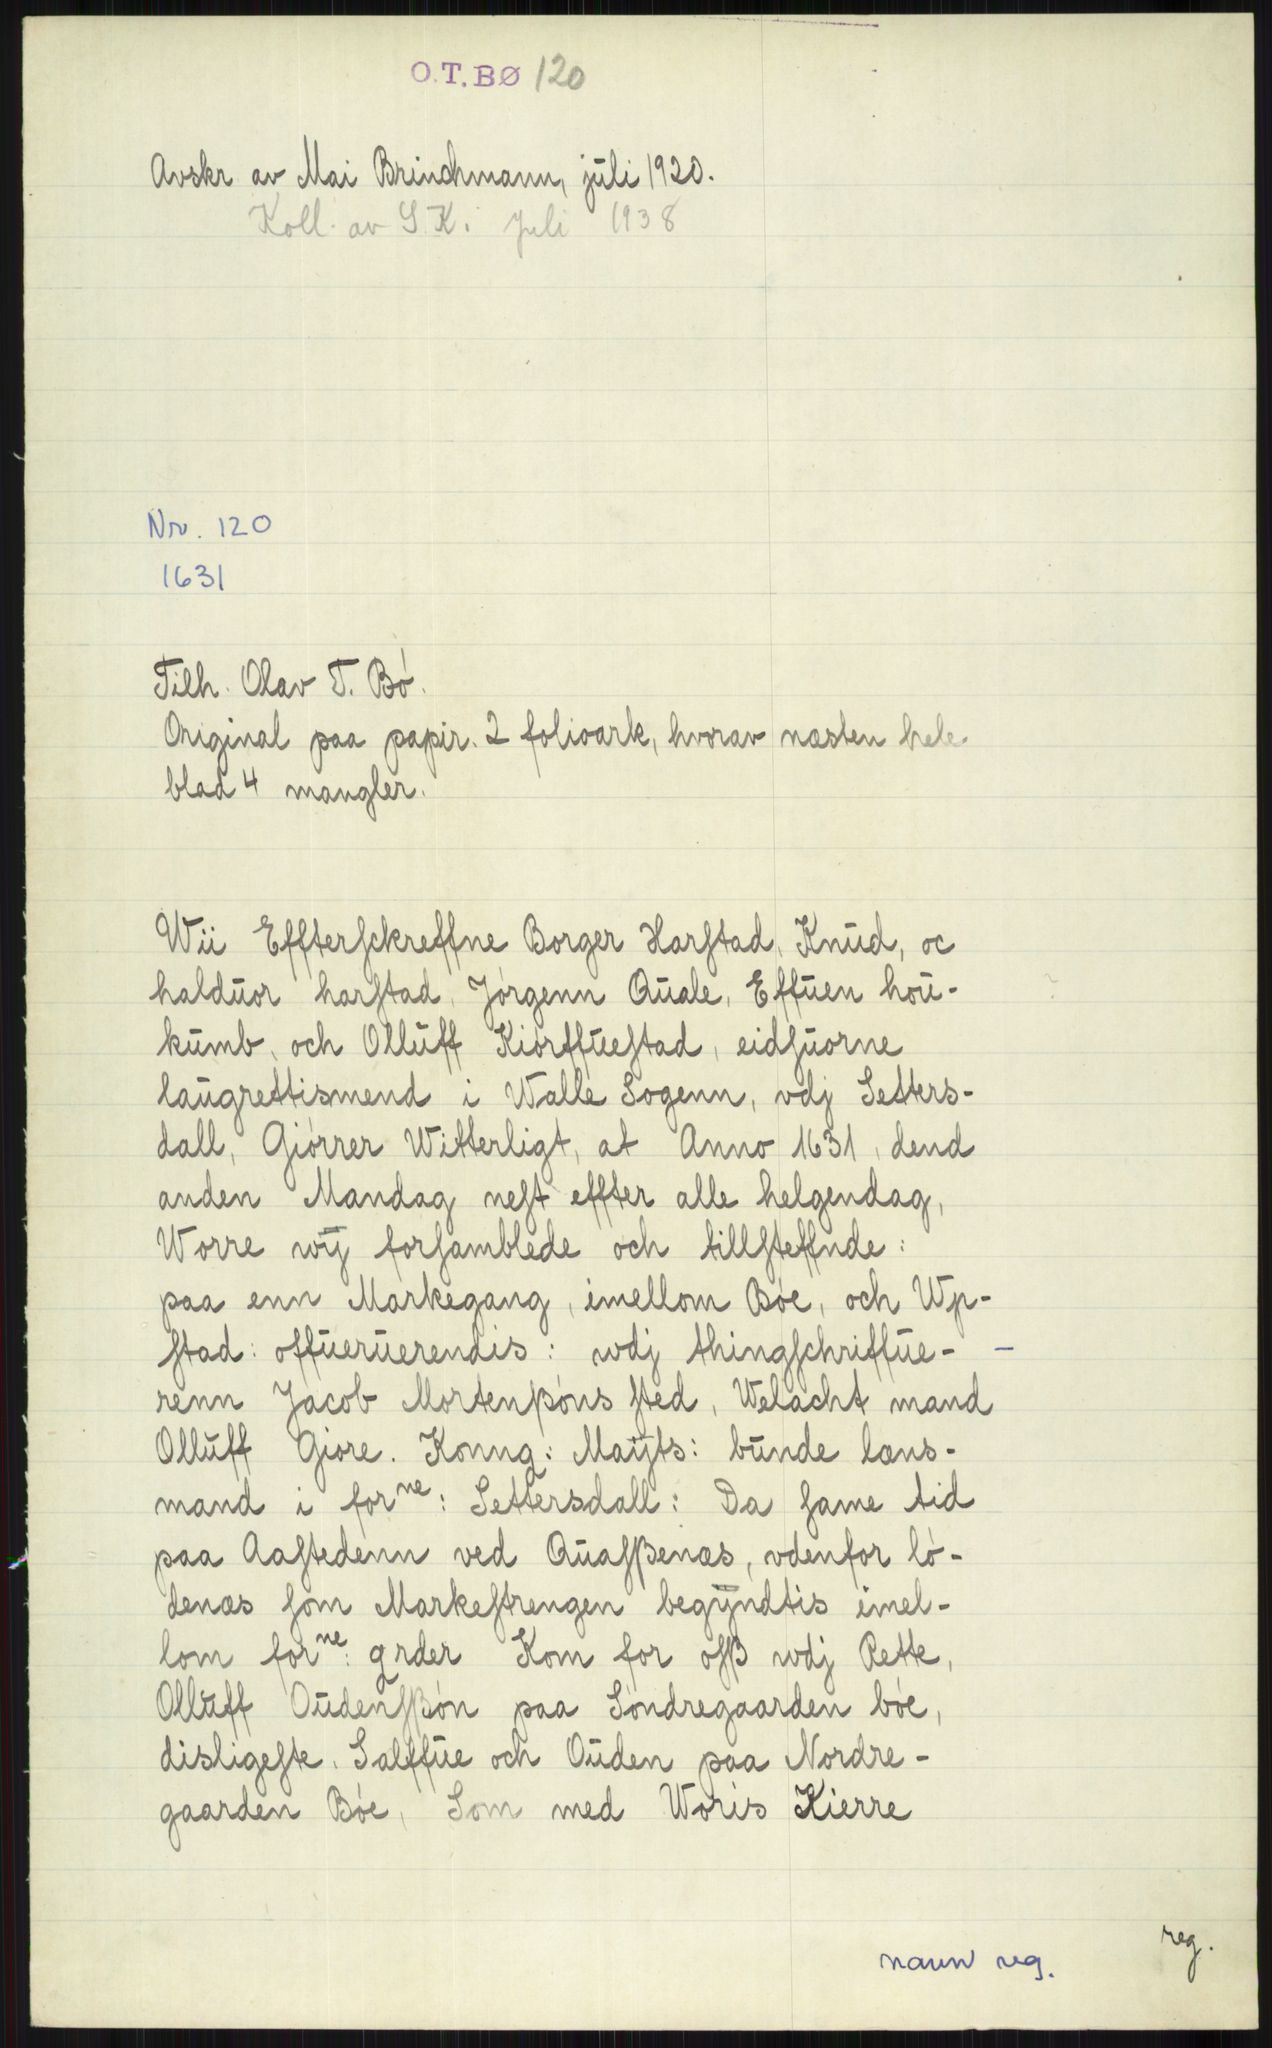 O.T.BØ 120
Avskr. av Mai Brinchmann, juli 1920.
Koll. av S.K. juli 1938
Nr. 120
1631
Tilh. Olav T. Bø.
Original paa papir. 2 folioark, hvorav næsten hele
blad 4 mangler.
Wii Effterſckreffne Borger Harſtad, Knud, oc
halduor harſtad, Jørgenn Quale, Effuen hou-
kumb, och Olluff Kiørffueſtad, eidſuorne
laugrettismend i Walle Sogenn, vdj Setters-
dall, Giørrer Witterligt, at Anno 1631, dend
anden Mandag neſt effter alle helgendag,
Worre wij forſamblede och tillſteffnde:
paa enn Markegang, imellom Bøe, och Wp-
ſtad: offueruerendis: wdj thingſchriffue-
renn Jacob Mortenßøns ſted, Welacht mand
Olluff Giøre. Konng: Maÿts: bunde læns-
mand i forne: Settersdall: Da ſame tid
paa Aaſtedenn ved Quaſßenæs, vdenfor lø-
denæs ſom Markeſtrengen begÿndtis imel-
lom forne: grder Kom for oſß wdj Rette,
Olluff Oudenſßøn paa Søndregaarden bøe,
disligeſte, Salffue och Ouden paa Nordre-
gaarden Bøe, Som med Woris Kierre
reg.
navn reg.